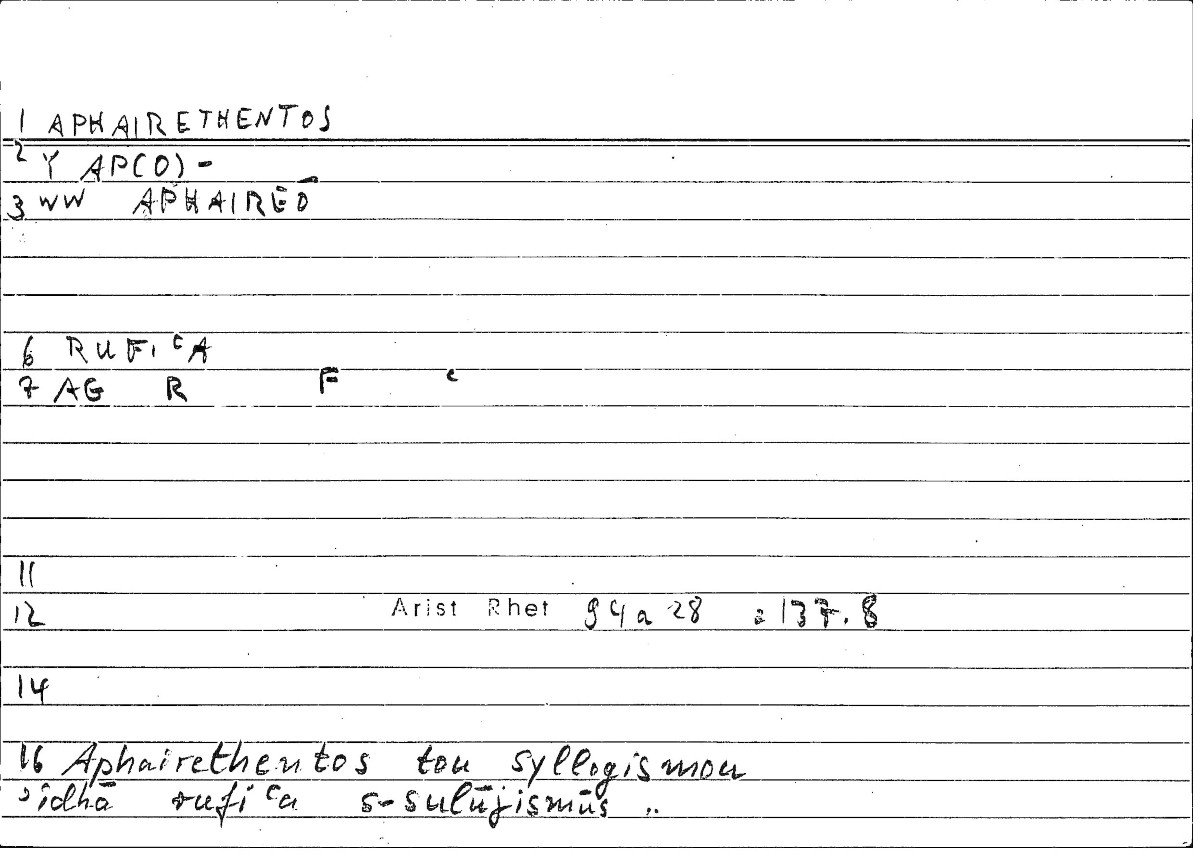 1 APHAIRETHENTOS
2 Y AP(O)-
3 WW APHAIREŌ
6 RUFIcA
7 AG R F c
11
12 Arist Rhet 94a 28 : 137.8
14
16 Aphairethentos tou syllogismou
ʾidhā rufica s-sulūjismūs ..